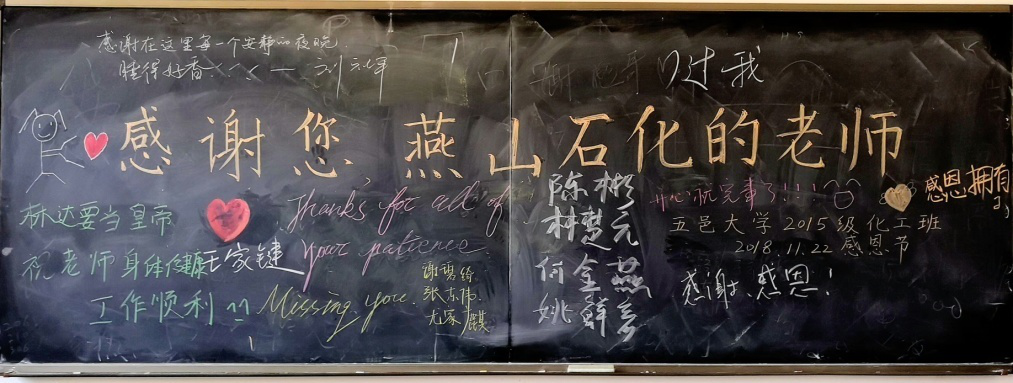 感谢在这里每一个安静的夜晚
睡得好香
过我
感谢您,燕山石化的老师
感恩拥有
林达要当皇帝
祝老师身体健康
工作顺利
王家键
Thanks for all of
your patience
Missing you.
谢雯绮
张东伟
尤家麒
陈彬
林慧元
何金燕
姚鲜
开心就完事了!!!
五邑大学2015级化工班
2018.11.22 感恩节
感谢、感恩!